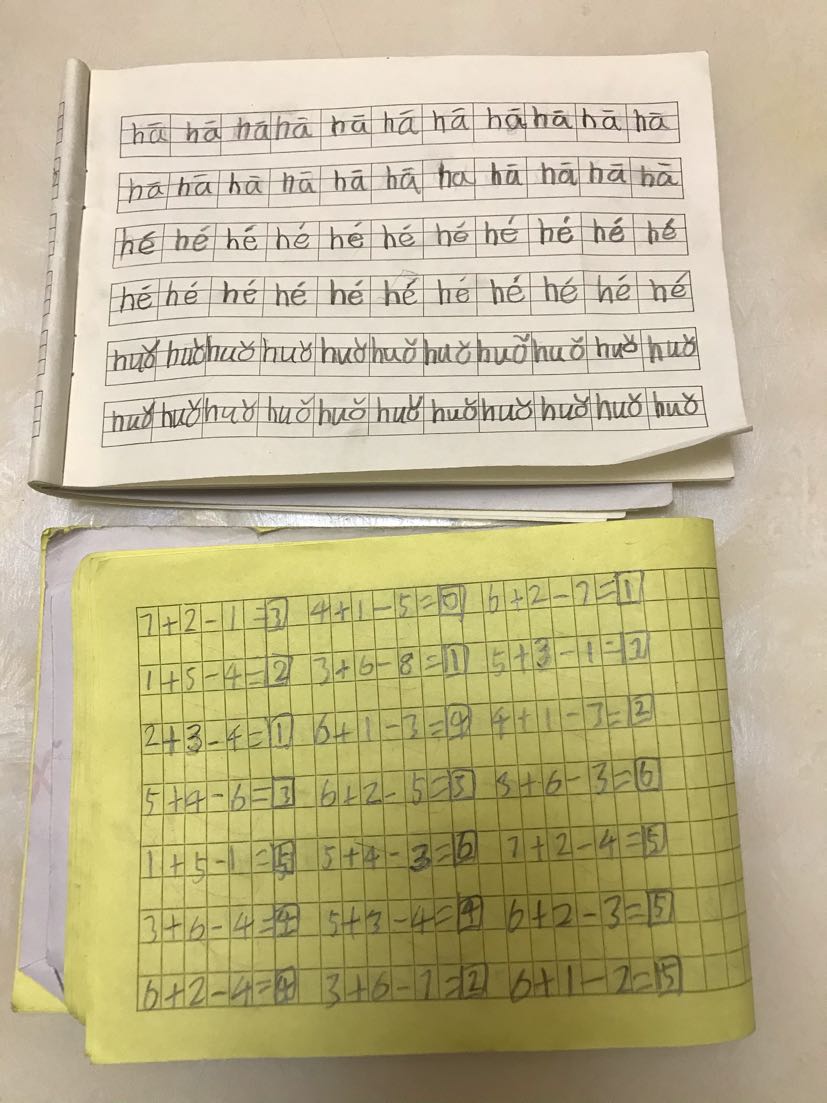 hā hā hā hā hā hā hā hā hā hā hā
hā hā hā hā hā hā ha hā hā hā hā
hé hé hé hé hé hé hé hé hé hé hé
hé hé hé hé hé hé hé hé hé hé hé
huǒ huǒ huǒ huǒ huǒ huǒ huǒ huǒ huǒ huǒ huǒ
huǒ huǒ huǒ huǒ huǒ huǒ huǒ huǒ huǒ huǒ huǒ
7+2-1=3 4+1-5=0 6+2-7=1
1+5-4=2 3+6-8=1 5+3-1=
2+3-4=1 6+1-3=4 4+1-3=2
5+4-6=3 6+2-5=3 3+6-3=6
1+5-1=5 5+4-3=6 7+2-4=5
3+6-4=4 5+3-4=4 6+2-3=5
6+2-4=4 3+6-7=2 6+1-2=5